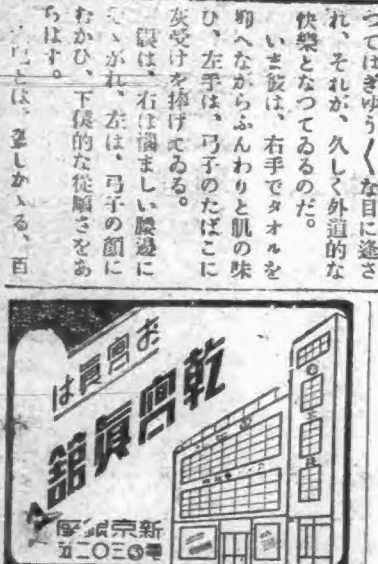 つてはぎゆう〱な目に逢さ
れ、それが、久しく外道的な
快樂となつてゐるのだ。
いま彼は、右手でタオルを
ながらふんわりと肌の味
ひ、左手は、弓子のたばこに
灰受けを捧げてゐる。
眼は、右は惱ましい腰邊に
そゝがれ、左は、弓子の顔に
むかひ、下僕的な從順さをあ
らはす。
とは、かゝる、百
お寫眞は
乾寫眞館
新京銀座
電③〇三二五